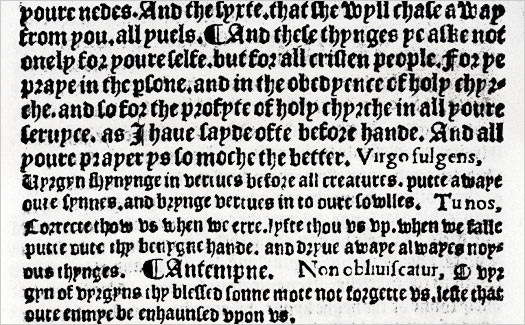 youre nedes. And the syxte, that she wyll chase away
from you, all yuels. ¶ And these thynges ye aske not
onely for youre selfe, but for all cristen people. For ye
praye in the psone. and in the obedyence of holy chyr-
che. and so for the profyte of holy chyrche in all youre
seruyce. as I haue sayde ofte before hande. And all
youre prayer ys so moche the better. Virgo fulgens,
Uyrgyn shynynge in vertues before all creatures. putte awaye
oure synnes, and brynge vertues in to oure sowlles. Tu nos,
Correcte thow vs when we erre. lyfte thou vs vp, when we falle
putte oute thy benygne hande. and dryue awaye alwayes noy-
ous thynges. ¶ Antempne. Non obliuiscatur, O vyr
gyn of vyrgyns thy blessed sonne mote not forgette vs, leste that
oure enmye be enhaunsed vpon vs.